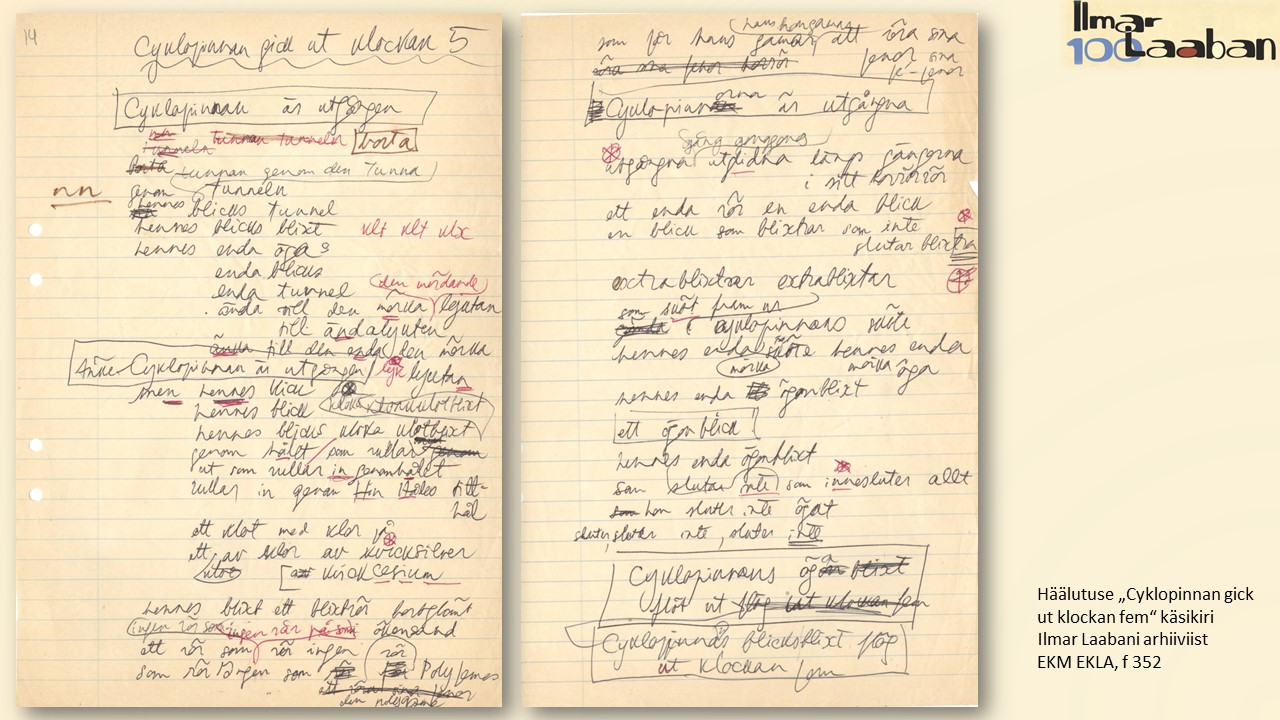 14
Cyklopinnan gick ut klockan 5
Cyklopinnan är utgången
tunneln tunnan tunneln borta
borta tunnan genom den tunna
genom tunneln
nn
hennes blicks tunnel
hennes blicks blixt klt klt klx
hennes enda öga
enda blicks
enda tunnel (den mördande)
ända till den mörka lejutan
till ändalyuten
till den enda den mörka
Cyklopinnan är utgången
men hennes klick
hennes blick
hennes blicks kloka klotblixt
genom hålet som rullar genom
ut som rullar in genomhålet
rullar in genom Hin Håles titt-
hål
ett klot med klor på
ett av klor av kvicksilver
klot kvickcesium
hennes blixt ett blixtrör bortglömt
ingen rör som ingen rör på som ökensand
ett rör som rör ingen rör
som rör ingen som Polyfemos
som för hans gamar att röra sina
röra sina fenor
fenor sina
Cyklopinnorna är utgångna
utgångna utglidna längs gångerna
i sitt rörrörrör
ett enda rör en enda blick
en blick som blixtrar som inte
slutar blixtra
extrablixtrar extrablixtar
som sköt fram ur
cyklopinnans sköte
hennes enda sköte hennes enda
mörka mörka öga
hennes enda ögonblixt
ett ögonblick
hennes enda ögonblixt
som slutar inte som innesluter allt
hon sluter inte ögat
sluter, slutar inte, sluter inte
Cyklopinnans öga blixt
flöt ut flög ut klockan fem
Cyklopinnans blicksblixt flög
ut klockan fem
Ilmar
100 Laaban
Häälutuse „Cyklopinnan gick
ut klockan fem“ käsikiri
Ilmar Laabani arhiivist
EKM EKLA, f 352